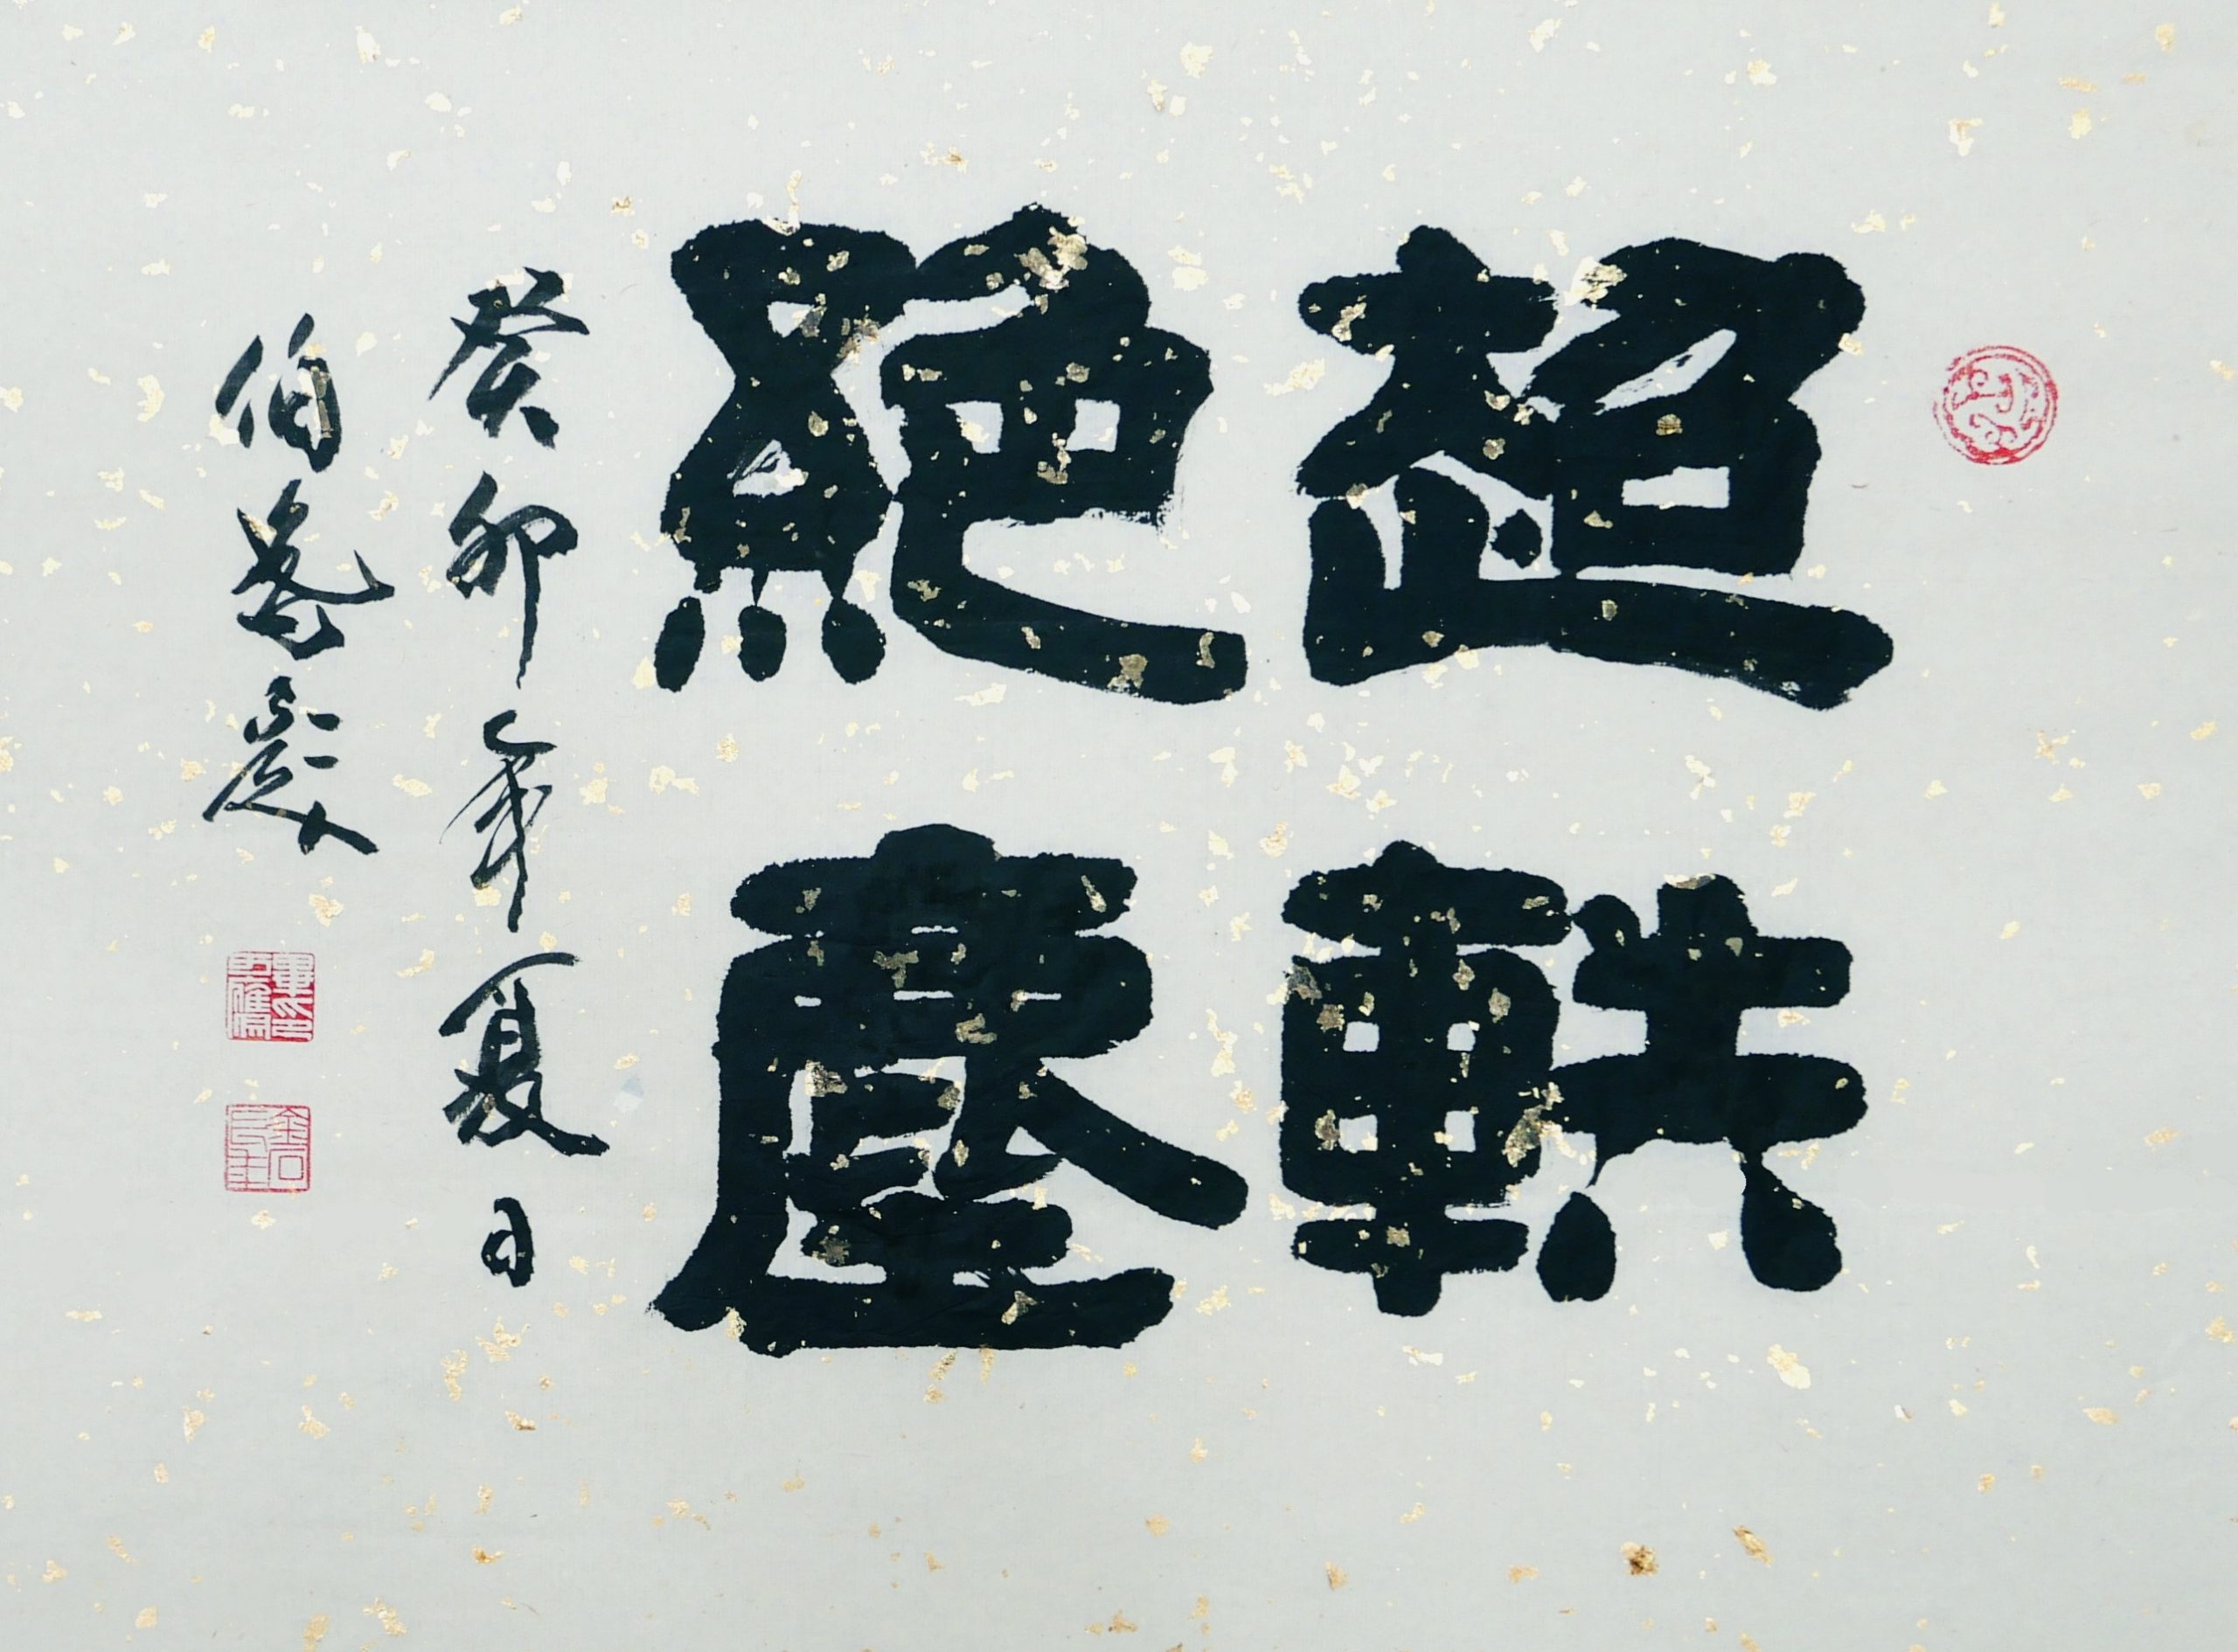 超軼
絕塵
癸卯年夏日
伯